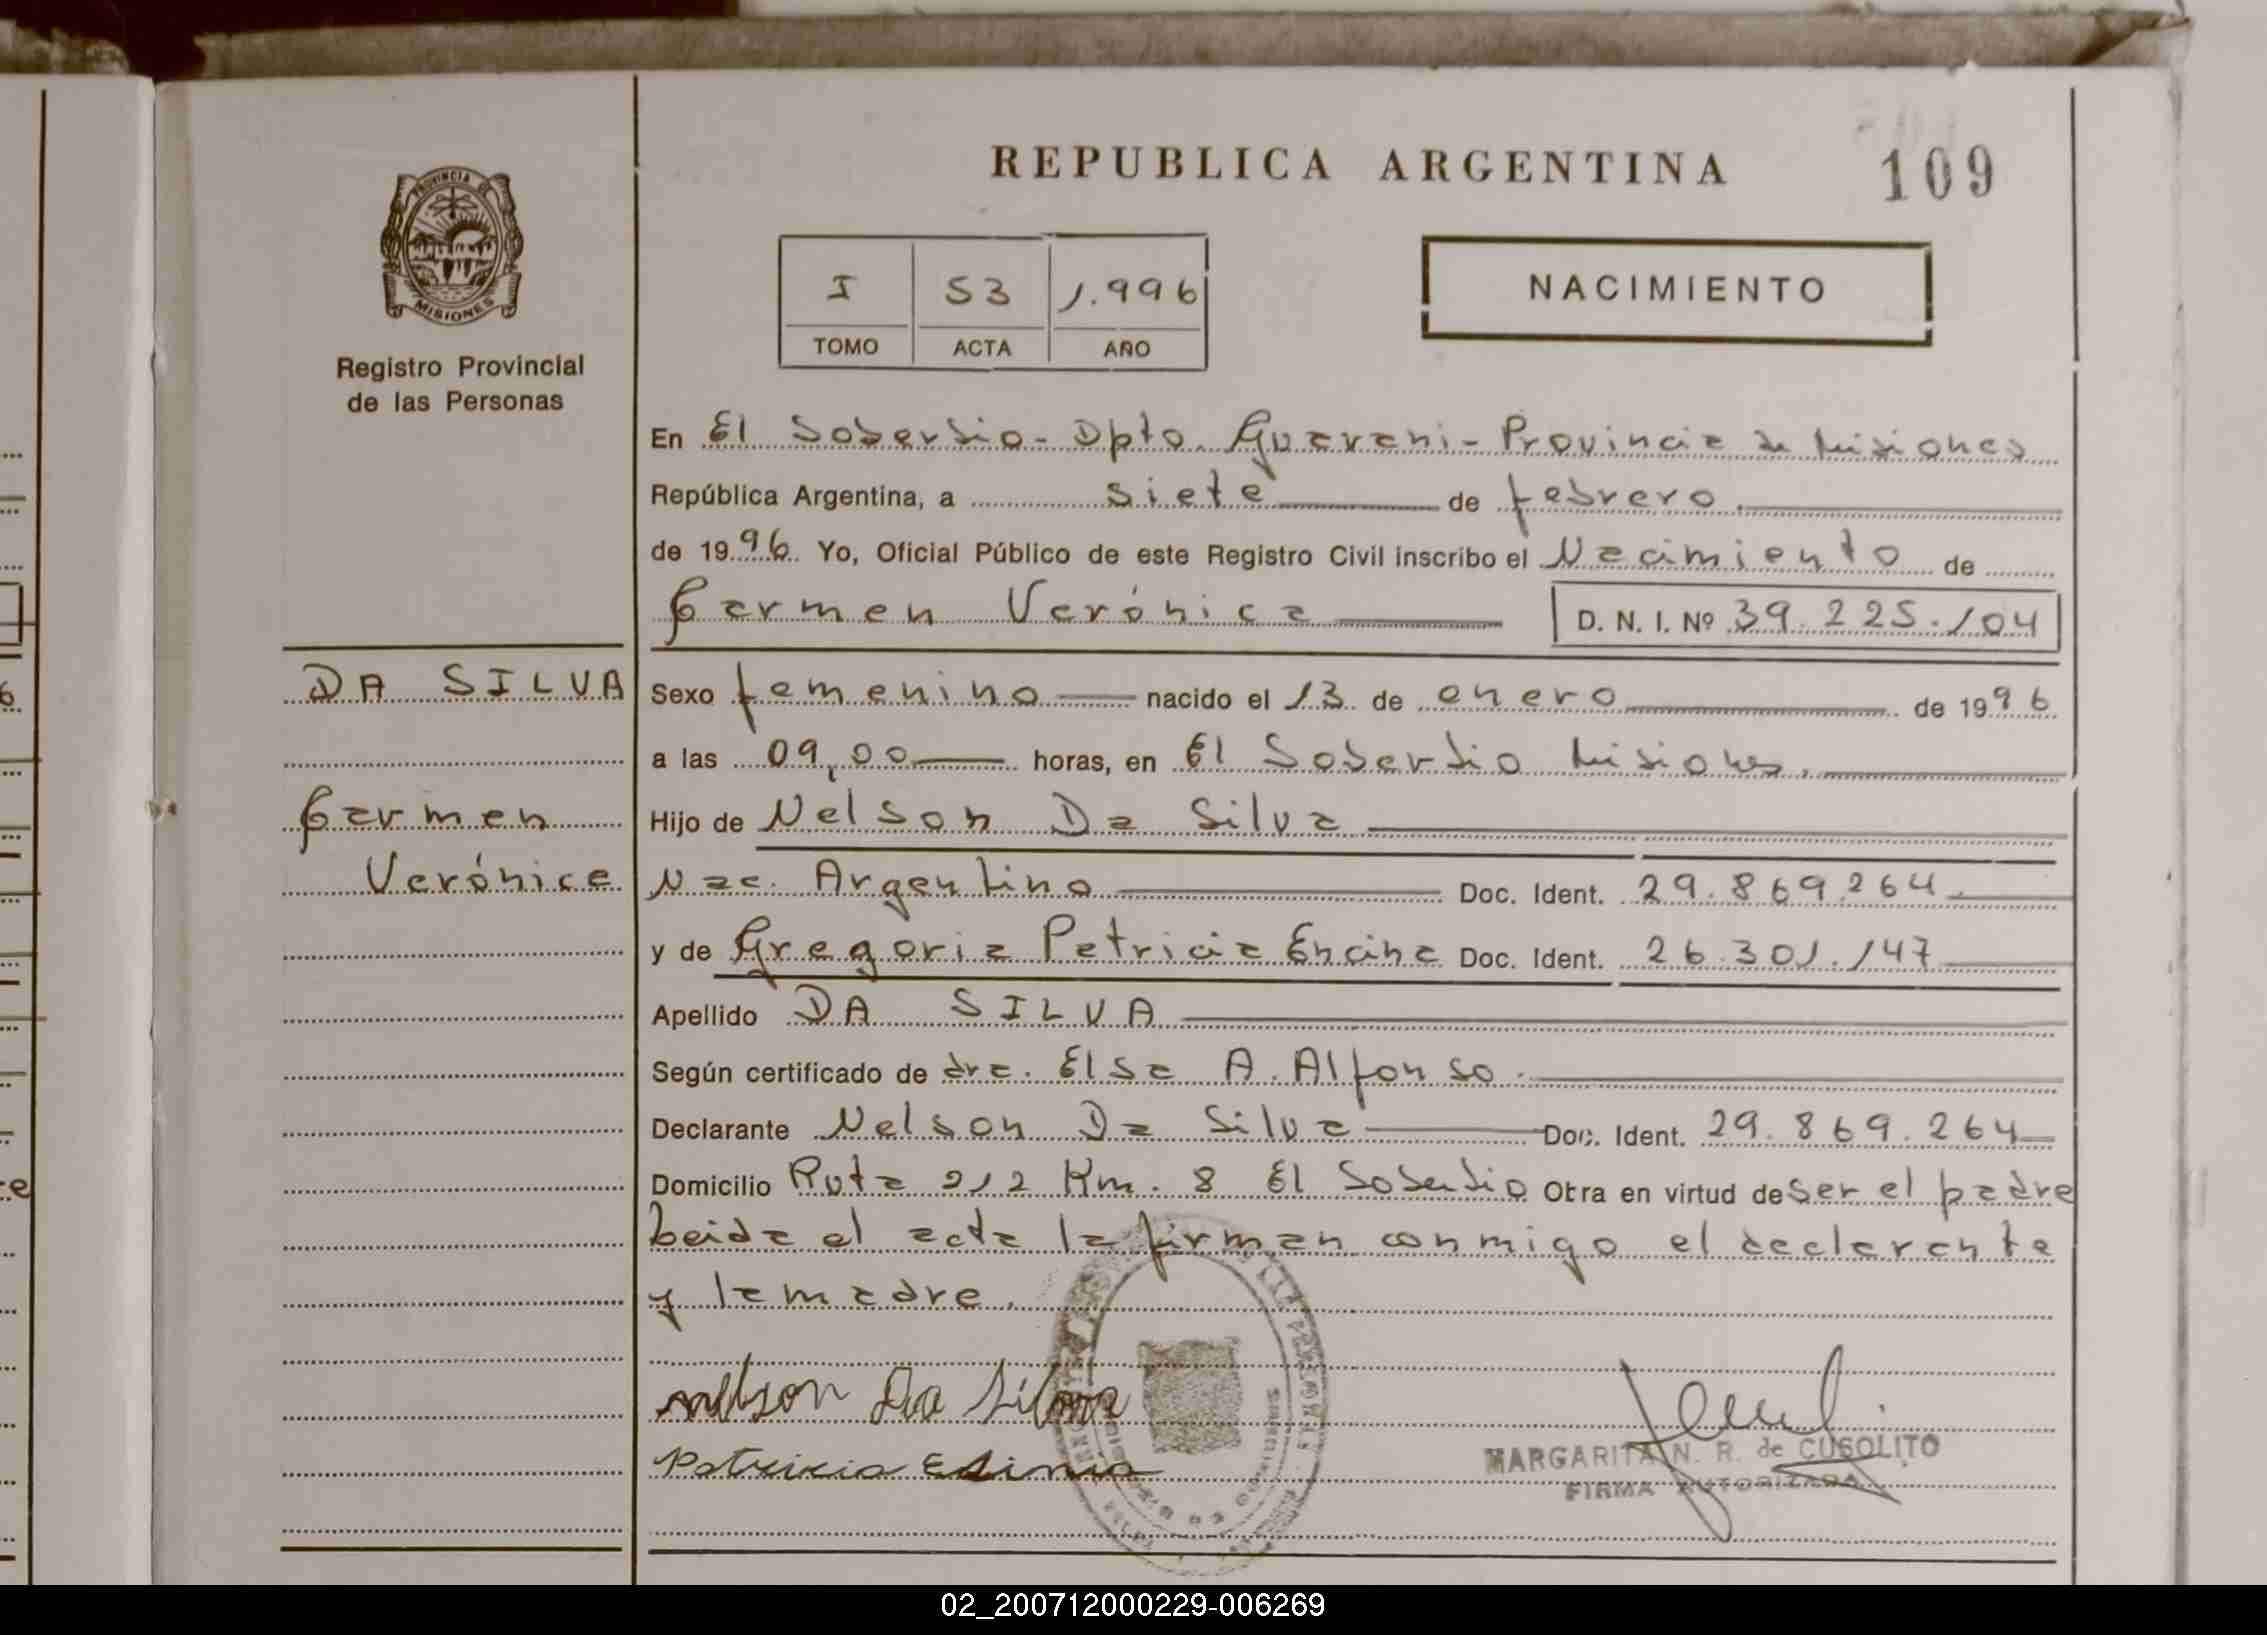 REPUBLICA ARGENTINA
109
PROVINCIA DE
MISIONES
Registro Provincial
de las Personas
I 53 1.996
TOMO ACTA AÑO
NACIMIENTO
En El Soberbio - Dpto. Guarani - Provincia de Misiones
República Argentina, a siete de febrero.
de 1996. Yo, Oficial Público de este Registro Civil inscribo el Nacimiento de
Carmen Verónica D. N. I. Nº 39.225.104
DA SILVA
Carmen
Verónica
Sexo femenino nacido el 13 de enero de 1996
a las 09,00 horas, en El Soberbio Misiones.
Hijo de Nelson Da Silva
Nac. Argentino Doc. Ident. 29.869.264
y de Gregoria Patricia Encina Doc. Ident. 26.301.147
Apellido DA SILVA
Según certificado de dra. Elsa A. Alfonso.
Declarante Nelson Da Silva Doc. Ident. 29.869.264
Domicilio Ruta 212 Km. 8 El Soberbio Obra en virtud de ser el padre
Leida el acta la firman conmigo el declarante
y la madre.
Nelson Da Silva
Patricia
MARGARITA N. R. de CUSOLITO
FIRMA AUTORIZADA
02_200712000229-006269